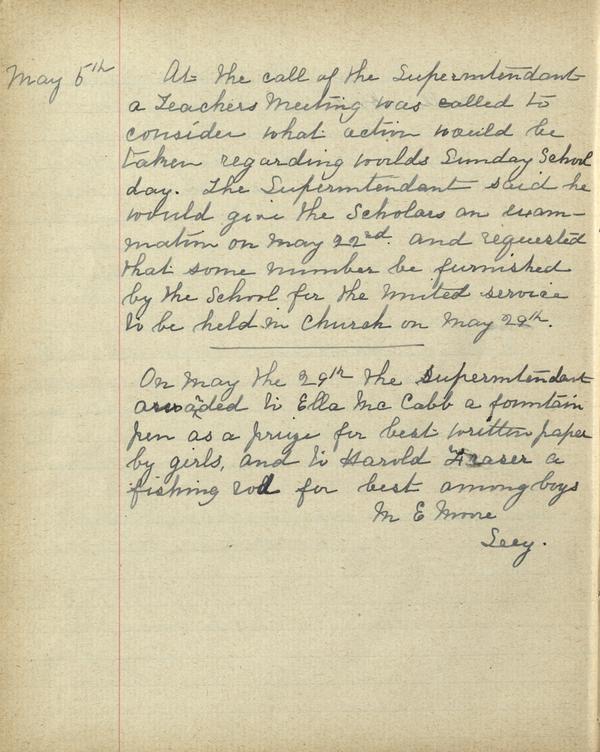 May 5th
At the call of the Superintendant
a Teachers Meeting was called to
consider what action would be
taken regarding worlds Sunday School
day. The Superintendant said he
would give the Scholars an exam-
ination on May 22nd. and requested
that some number be furnished
by the School for the United service
to be held in Church on May 29th.
On May the 29th the Superintendant
awarded to Ella Mc Cabb a fountain
pen as a prize for best written paper
by girls, and to Harold Fraser a
fishing rod for best among boys
M E Moore
Secy.